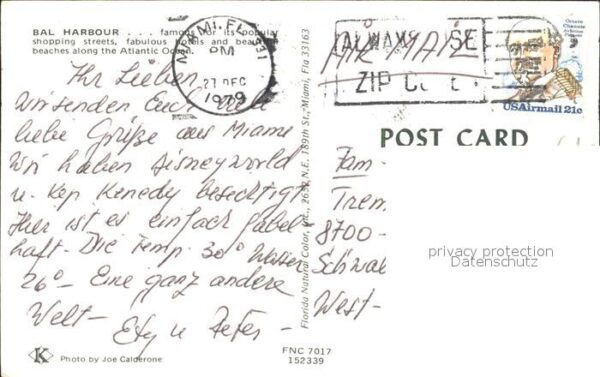 BAL HARBOUR . . . famous for its popular
shopping streets, fabulous hotels and beautiful
beaches along the Atlantic Ocean.
Ihr Lieben
Wir senden Euch
liebe Grüße aus Miami
Wir haben Disneyworld
u. Kep Kenedy besechtigt
Hier ist es einfach fabel-
haft - Die Temp. 30° Wasser
26° - Eine ganz andere
Welt -
u. Peter -
K Photo by Joe Calderone
MIAMI, FL 331
PM
27 DEC
1979
ALWAYS USE
ZIP CODE
AIR MAIL
Octave
Chanute
Aviation
Pioneer
USAirmail 21c
POST CARD
Florida Natural Color, Inc., 2632 N.E. 189th St., Miami, Fla 33163
Fam.
8700 -
West -
privacy protection
Datenschutz
FNC 7017
152339